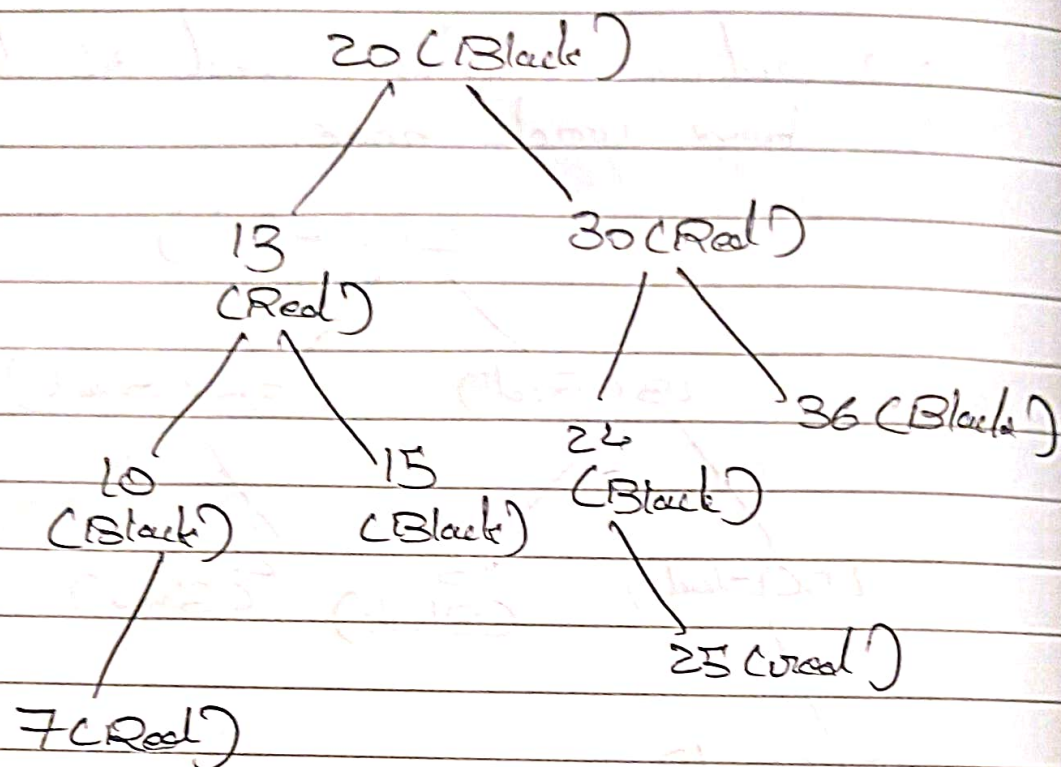 20 (Black)
13
(Red)
30 (Red)
10
(Black)
15
(Black)
24
(Black)
36 (Black)
7 (Red)
25 (red)